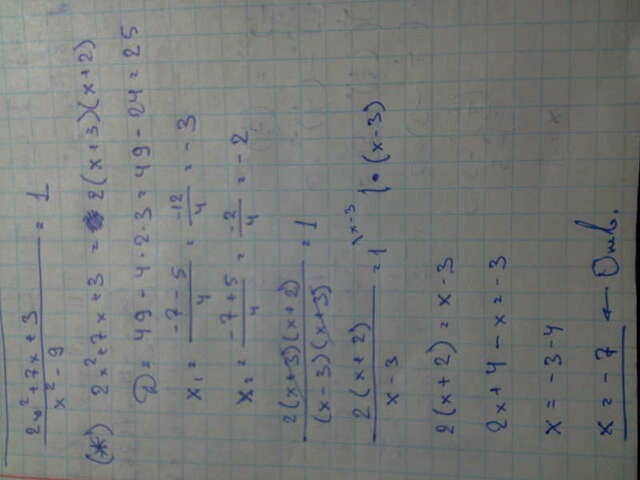 (2x²+7x+3)/(x²-9) = 1
(*) 2x²+7x+3 = 2(x+3)(x+2)
D = 49-4·2·3 = 49-24 = 25
x₁ = (-7-5)/4 = -12/4 = -3
x₂ = (-7+5)/4 = -2/4 = -2
2(x+3)(x+2)/((x-3)(x+3)) = 1
2(x+2)/(x-3) = 1 \x-3 | · (x-3)
2(x+2) = x-3
2x+4-x = -3
x = -3-4
x = -7 ← Отв.